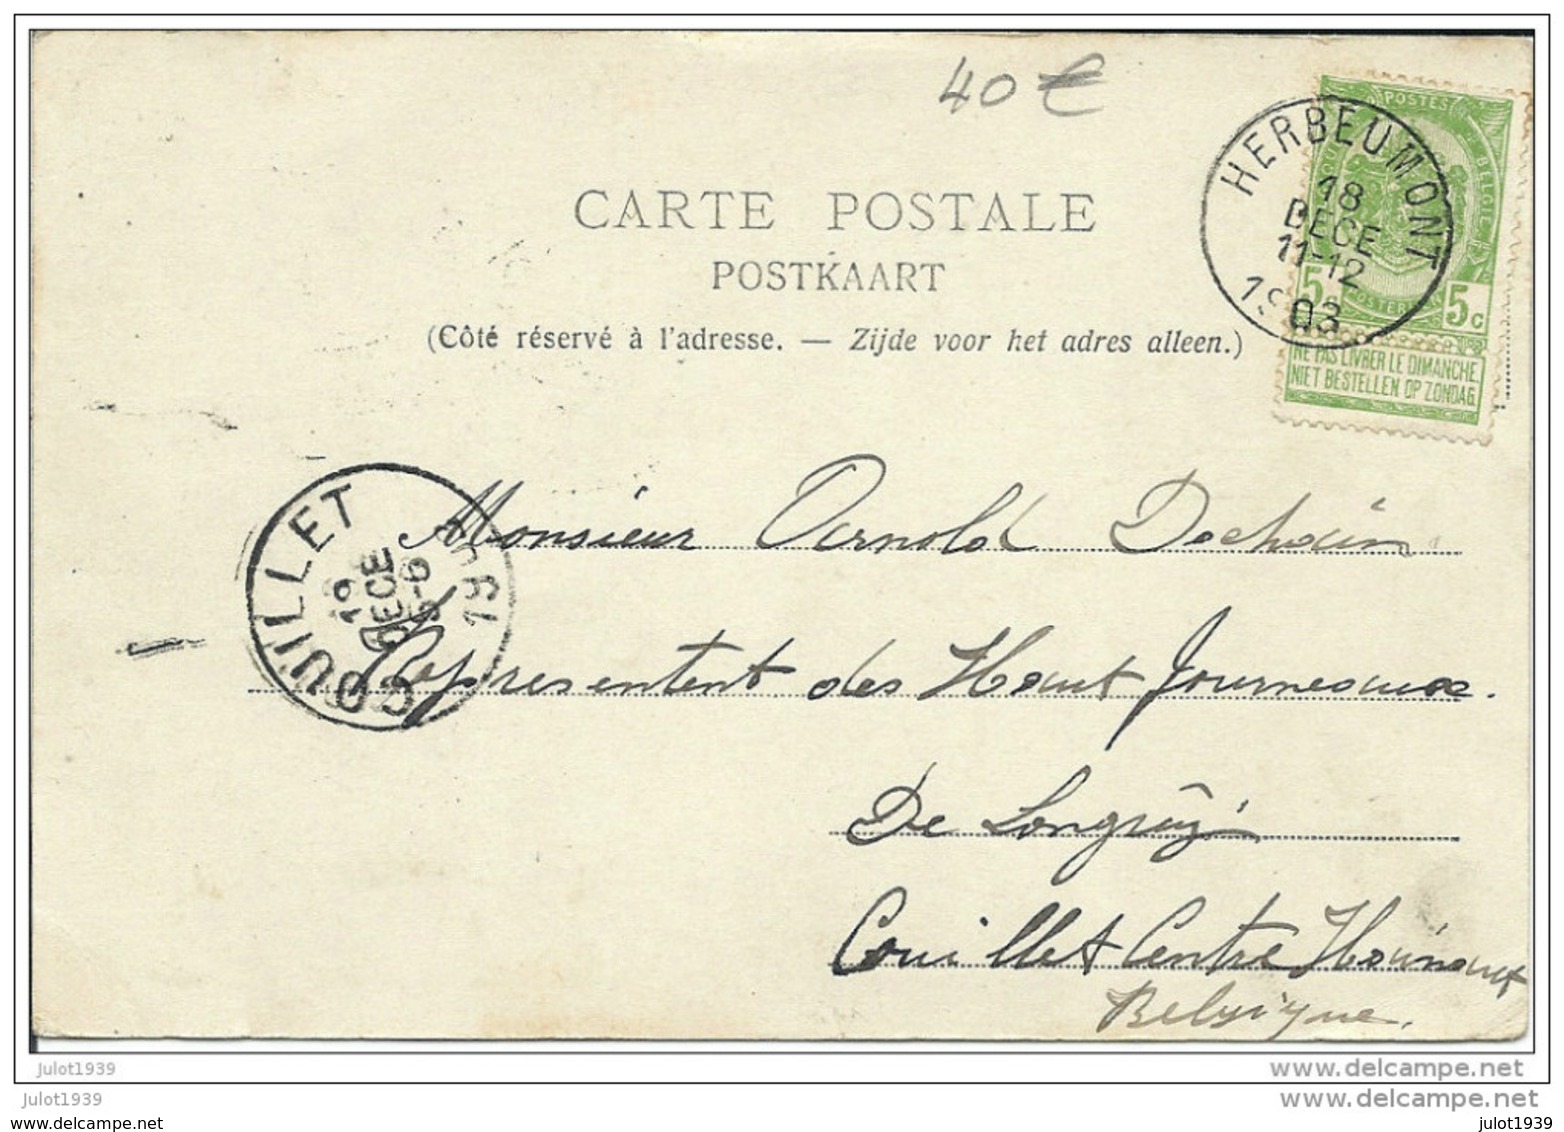 40 €
CARTE POSTALE
POSTKAART
(Côté réservé à l'adresse. — Zijde voor het adres alleen.)
HERBEUMONT
18
DECE
11-12
1903
POSTES
BELGIQUE
BELGIE
5
POSTERIJEN
5c
NE PAS LIVRER LE DIMANCHE
NIET BESTELLEN OP ZONDAG
COUILLET
19
DECE
5-6
Monsieur Arnold Dechain
Représentent des Haut Journeaux.
De Longuÿ
Couillet Centre Hainaut
Belgique.
julot1939
www.delcampe.net
julot1939
www.delcampe.net
julot1939
julot1939